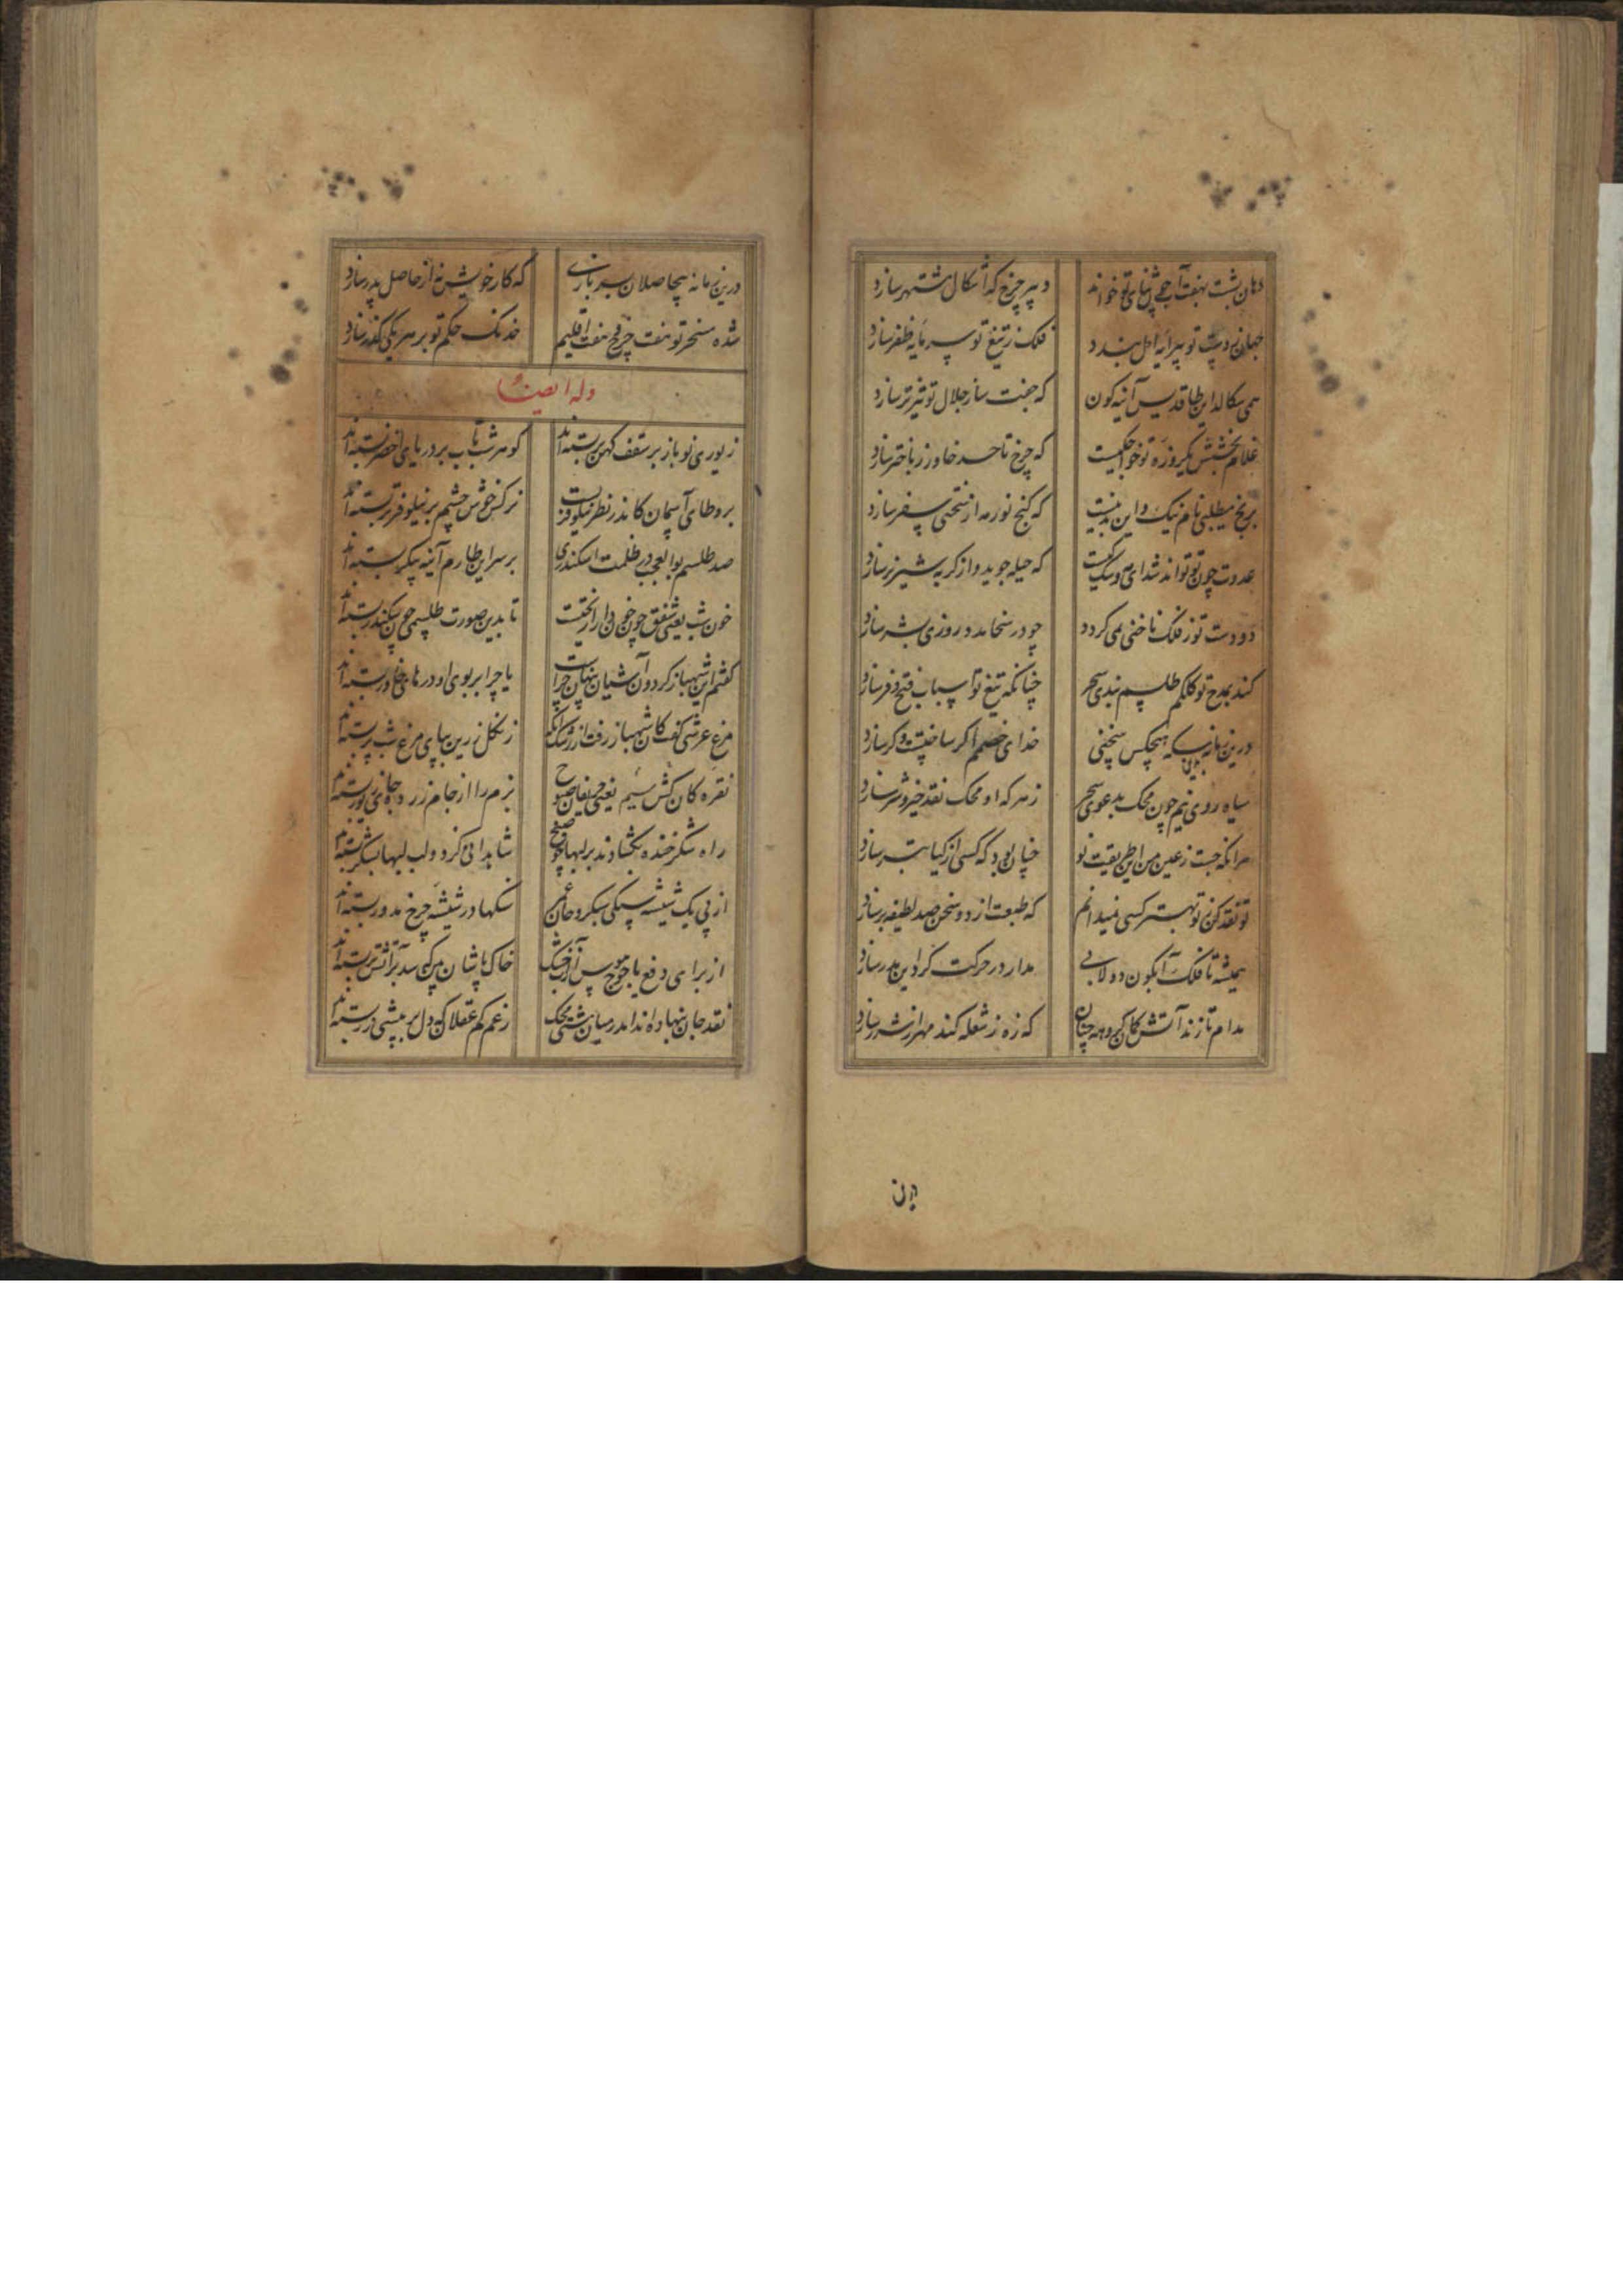 دهان بشت بهفت آب جوی ثنای تو خواند
دبیر چرخ که اشکال مشتهر سازد
جهان ز دست تو پیرایه امل بندد
فلک ز تیغ تو سرمایه ظفر سازد
همی سکالد این طاقدیس آینه کون
که جفت ساز جلال تو تیزتر سازد
غلام بخشش یکروزه تو خواهد
که چرخ تا حد خاور ز باختر سازد
برنج میطلبی نام نیک و این
که کنج نور مه از سختی سفر سازد
عدوت چون تو تواند شد ای
که حیله جوید و از کربه شیر نر سازد
دو دست تو ز فلک ناخنی نمی کردد
چو در سخا مدد روزی بشر سازد
کند بمدح تو کلکم طلسم بندی سحر
چنانکه تیغ تو اسباب فتح و فر سازد
درین زمانه به هیچکس سخنی
خدای خصمم اکر ساختست و کر سازد
سیاه روی نیم چون محک بدعوی سحر
زهر که او محک نقد خیر و شر سازد
هر آنکه جست ز عین من این طریقت نو
چنان بود که کسی از کیا تبر سازد
تو نقد کن ز تو بهتر کسی نمیدانم
که طبعت از دو سخن صد لطیفه بر سازد
همیشه تا فلک آبکون دولابی
مدار در حرکت کرد این مدر سازد
مدام تا زند آتش کمان کروهه چنان
که زه ز شعله کند مهره از شرر سازد
درین
درین زمانه بیحاصلان سیر بازی
که کار خویش نه از حاصل پدر سازد
شده مسخر تو هفت چرخ و هفت اقلیم
خدنک حکم تو بر هر یکی کذر سازد
وله ایضا
زیوری نو باز بر سقف کهن بر بسته‌اند
کوهر شب تاب بر دریای اخضر بسته‌اند
بر وطای آسمان کاندر نظر نیلوفریست
نرکس خوش چشم بر نیلوفر تر بسته‌اند
صد طلسم بوالعجب در ظلمت اسکندری
بر سر این طارم آینه پیکر بسته‌اند
خون شب یعنی شفق چون خون دارا ریختست
تا بدین صورت طلسمی چون سکندر بسته‌اند
کفتم این شهباز کردون آشیان پنهان چراست
یا چرا بر بوی او درهای خاور بسته‌اند
مرغ عرشی کفت کان شهباز رفت از
زنکل زرین بپای مرغ شب پر بسته‌اند
نقره کان کش سیم یعنی حریفان صبوح
بزم را از جام زر جای زیور بسته‌اند
راه شکر خنده بکشادند بر لبها چو صبح
شاهدانی کرد و لب لبها بشکر بسته‌اند
از پی یک شیشه سنکی سبکرو جان
سنکها در شیشه چرخ مدور بسته‌اند
از برای دفع یاجوج هوس زآب خشک
خاک پاشان بین که سد بر آتش تر بسته‌اند
نقد جان بنهاده‌اند اندر میان مشتی محک
زعم کم عقلان که دل بر بیشی زر بسته‌اند